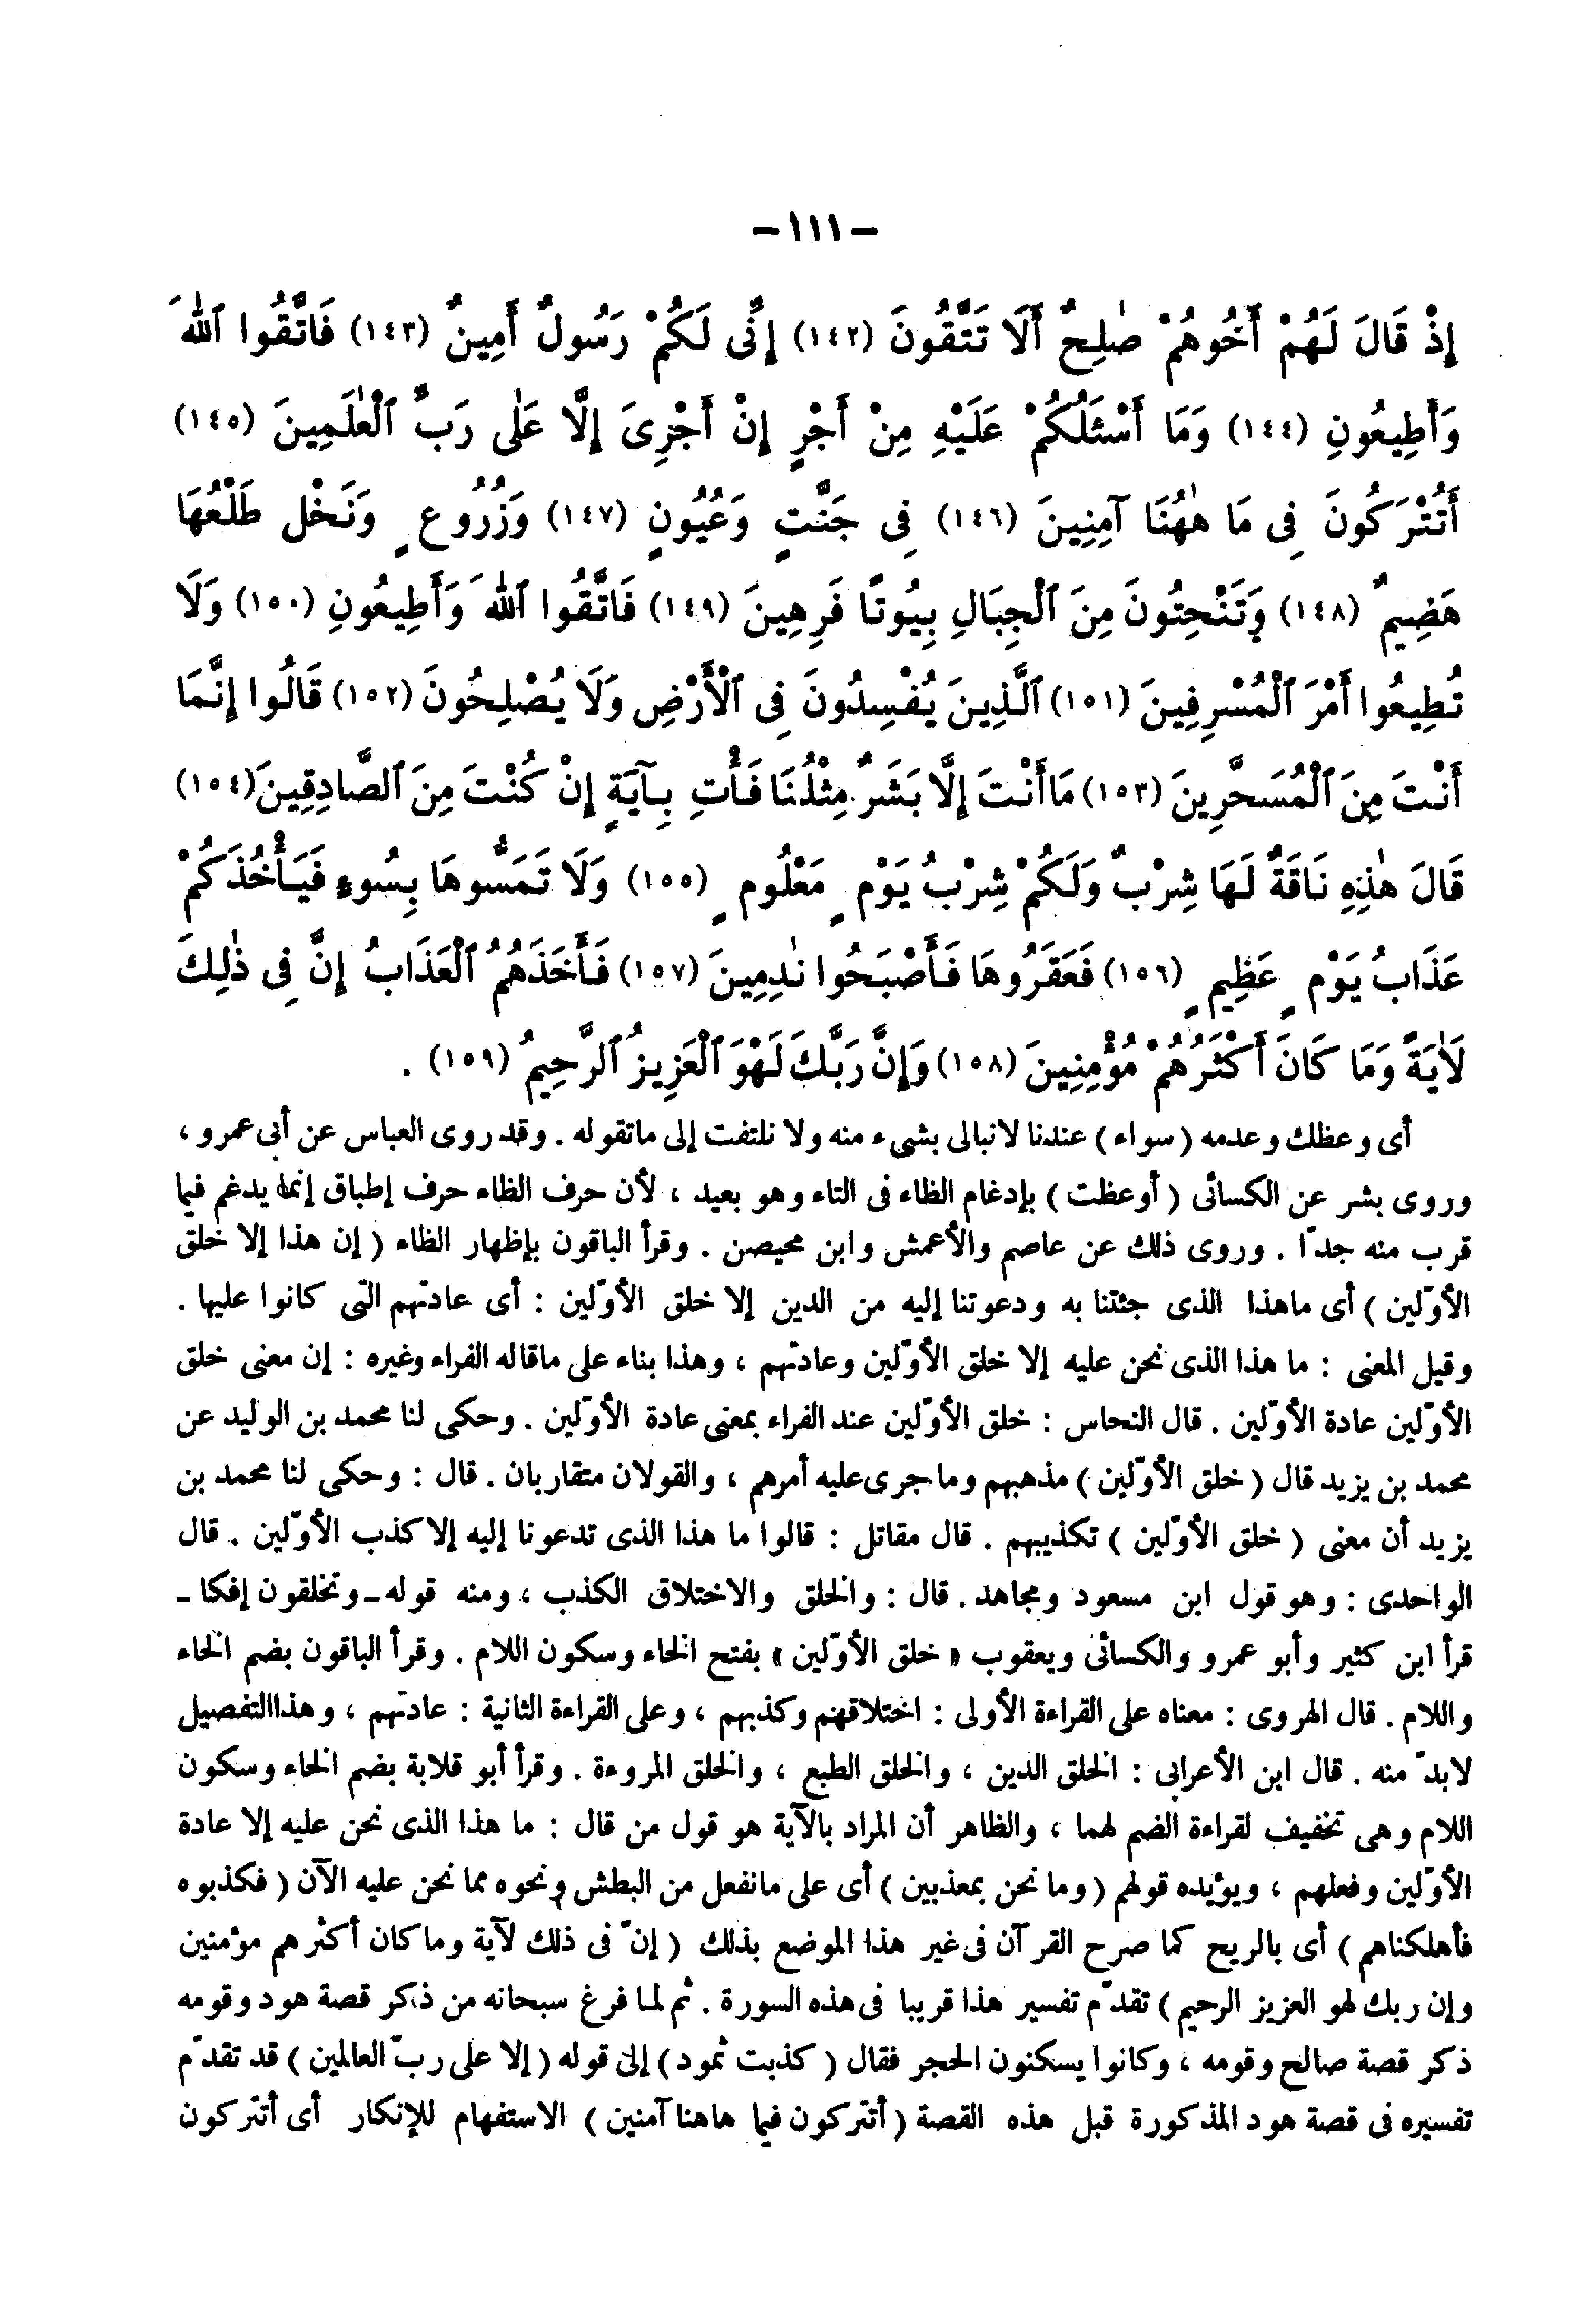 - ١١١ -
إِذْ قَالَ لَهُمْ أَخُوهُمْ صٰلِحٌ أَلَا تَتَّقُونَ (١٤٢) إِنِّى لَكُمْ رَسُولٌ أَمِينٌ (١٤٣) فَاتَّقُوا ٱللهَ
وَأَطِيعُونِ (١٤٤) وَمَا أَسْئَلُكُمْ عَلَيْهِ مِنْ أَجْرٍ إِنْ أَجْرِىَ إِلَّا عَلٰى رَبِّ ٱلْعٰلَمِينَ (١٤٥)
أَتُتْرَكُونَ فِى مَا هٰهُنَا آمِنِينَ (١٤٦) فِى جَنّٰتٍ وَعُيُونٍ (١٤٧) وَزُرُوعٍ وَنَخْلٍ طَلْعُهَا
هَضِيمٌ (١٤٨) وَتَنْحِتُونَ مِنَ ٱلْجِبَالِ بِيُوتًا فَرِهِينَ (١٤٩) فَاتَّقُوا ٱللهَ وَأَطِيعُونِ (١٥٠) وَلَا
تُطِيعُوا أَمْرَ ٱلْمُسْرِفِينَ (١٥١) ٱلَّذِينَ يُفْسِدُونَ فِى ٱلْأَرْضِ وَلَا يُصْلِحُونَ (١٥٢) قَالُوا إِنَّمَا
أَنْتَ مِنَ ٱلْمُسَحَّرِينَ (١٥٣) مَا أَنْتَ إِلَّا بَشَرٌ مِثْلُنَا فَأْتِ بِـآيَةٍ إِنْ كُنْتَ مِنَ ٱلصَّادِقِينَ (١٥٤)
قَالَ هٰذِهِ نَاقَةٌ لَهَا شِرْبٌ وَلَكُمْ شِرْبُ يَوْمٍ مَعْلُومٍ (١٥٥) وَلَا تَمَسُّوهَا بِسُوءٍ فَيَأْخُذَكُمْ
عَذَابُ يَوْمٍ عَظِيمٍ (١٥٦) فَعَقَرُوهَا فَأَصْبَحُوا نٰدِمِينَ (١٥٧) فَأَخَذَهُمُ ٱلْعَذَابُ إِنَّ فِى ذٰلِكَ
لَاٰيَةً وَمَا كَانَ أَكْثَرُهُمْ مُؤْمِنِينَ (١٥٨) وَإِنَّ رَبَّكَ لَهْوَ ٱلْعَزِيزُ ٱلرَّحِيمُ (١٥٩) .
أى وعظك وعدمه ( سواء ) عندنا لانبالى بشىء منه ولا نلتفت إلى ماتقوله . وقد روى العباس عن أبى عمرو ،
وروى بشر عن الكسائى ( أوعظت ) بإدغام الظاء فى التاء وهو بعيد ، لأن حرف الظاء حرف إطباق إنما يدغم فيما
قرب منه جدّا . وروى ذلك عن عاصم والأعمش وابن محيصن . وقرأ الباقون بإظهار الظاء ( إن هذا إلا خلق
الأوّلين ) أى ماهذا الذى جئتنا به ودعوتنا إليه من الدين إلا خلق الأوّلين : أى عادتهم التى كانوا عليها .
وقيل المعنى : ما هذا الذى نحن عليه إلا خلق الأوّلين وعادتهم ، وهذا بناء على ماقاله الفراء وغيره : إن معنى خلق
الأوّلين عادة الأوّلين . قال النحاس : خلق الأوّلين عند الفراء بمعنى عادة الأوّلين . وحكى لنا محمد بن الوليد عن
محمد بن يزيد قال ( خلق الأوّلين ) مذهبهم وماجرى عليه أمرهم ، والقولان متقاربان . قال : وحكى لنا محمد بن
يزيد أن معنى ( خلق الأوّلين ) تكذيبهم . قال مقاتل : قالوا ما هذا الذى تدعونا إليه إلا كذب الأوّلين . قال
الواحدى : وهو قول ابن مسعود ومجاهد . قال : والخلق والاختلاق الكذب ، ومنه قوله - وتخلقون إفكا -
قرأ ابن كثير وأبو عمرو والكسائى ويعقوب « خلق الأوّلين » بفتح الخاء وسكون اللام . وقرأ الباقون بضم الخاء
واللام . قال الهروى : معناه على القراءة الأولى : اختلاقهم وكذبهم ، وعلى القراءة الثانية : عادتهم ، وهذا التفصيل
لابدّ منه . قال ابن الأعرابى : الخلق الدين ، والخلق الطبع ، والخلق المروءة . وقرأ أبو قلابة بضم الخاء وسكون
اللام وهى تخفيف لقراءة الضم لهما ، والظاهر أن المراد بالآية هو قول من قال : ما هذا الذى نحن عليه إلا عادة
الأوّلين وفعلهم ، ويؤيده قولهم ( وما نحن بمعذبين ) أى على مانفعل من البطش ونحوه مما نحن عليه الآن ( فكذبوه
فأهلكناهم ) أى بالريح كما صرح القرآن فى غير هذا الموضع بذلك ( إنّ فى ذلك لآية وما كان أكثرهم مؤمنين
وإن ربك لهو العزيز الرحيم ) تقدّم تفسير هذا قريبا فى هذه السورة . ثم لما فرغ سبحانه من ذكر قصة هود وقومه
ذكر قصة صالح وقومه ، وكانوا يسكنون الحجر فقال ( كذبت ثمود ) إلى قوله ( إلا على ربّ العالمين ) قد تقدّم
تفسيره فى قصة هود المذكورة قبل هذه القصة ( أتتركون فيما هاهنا آمنين ) الاستفهام للإنكار أى أتتركون